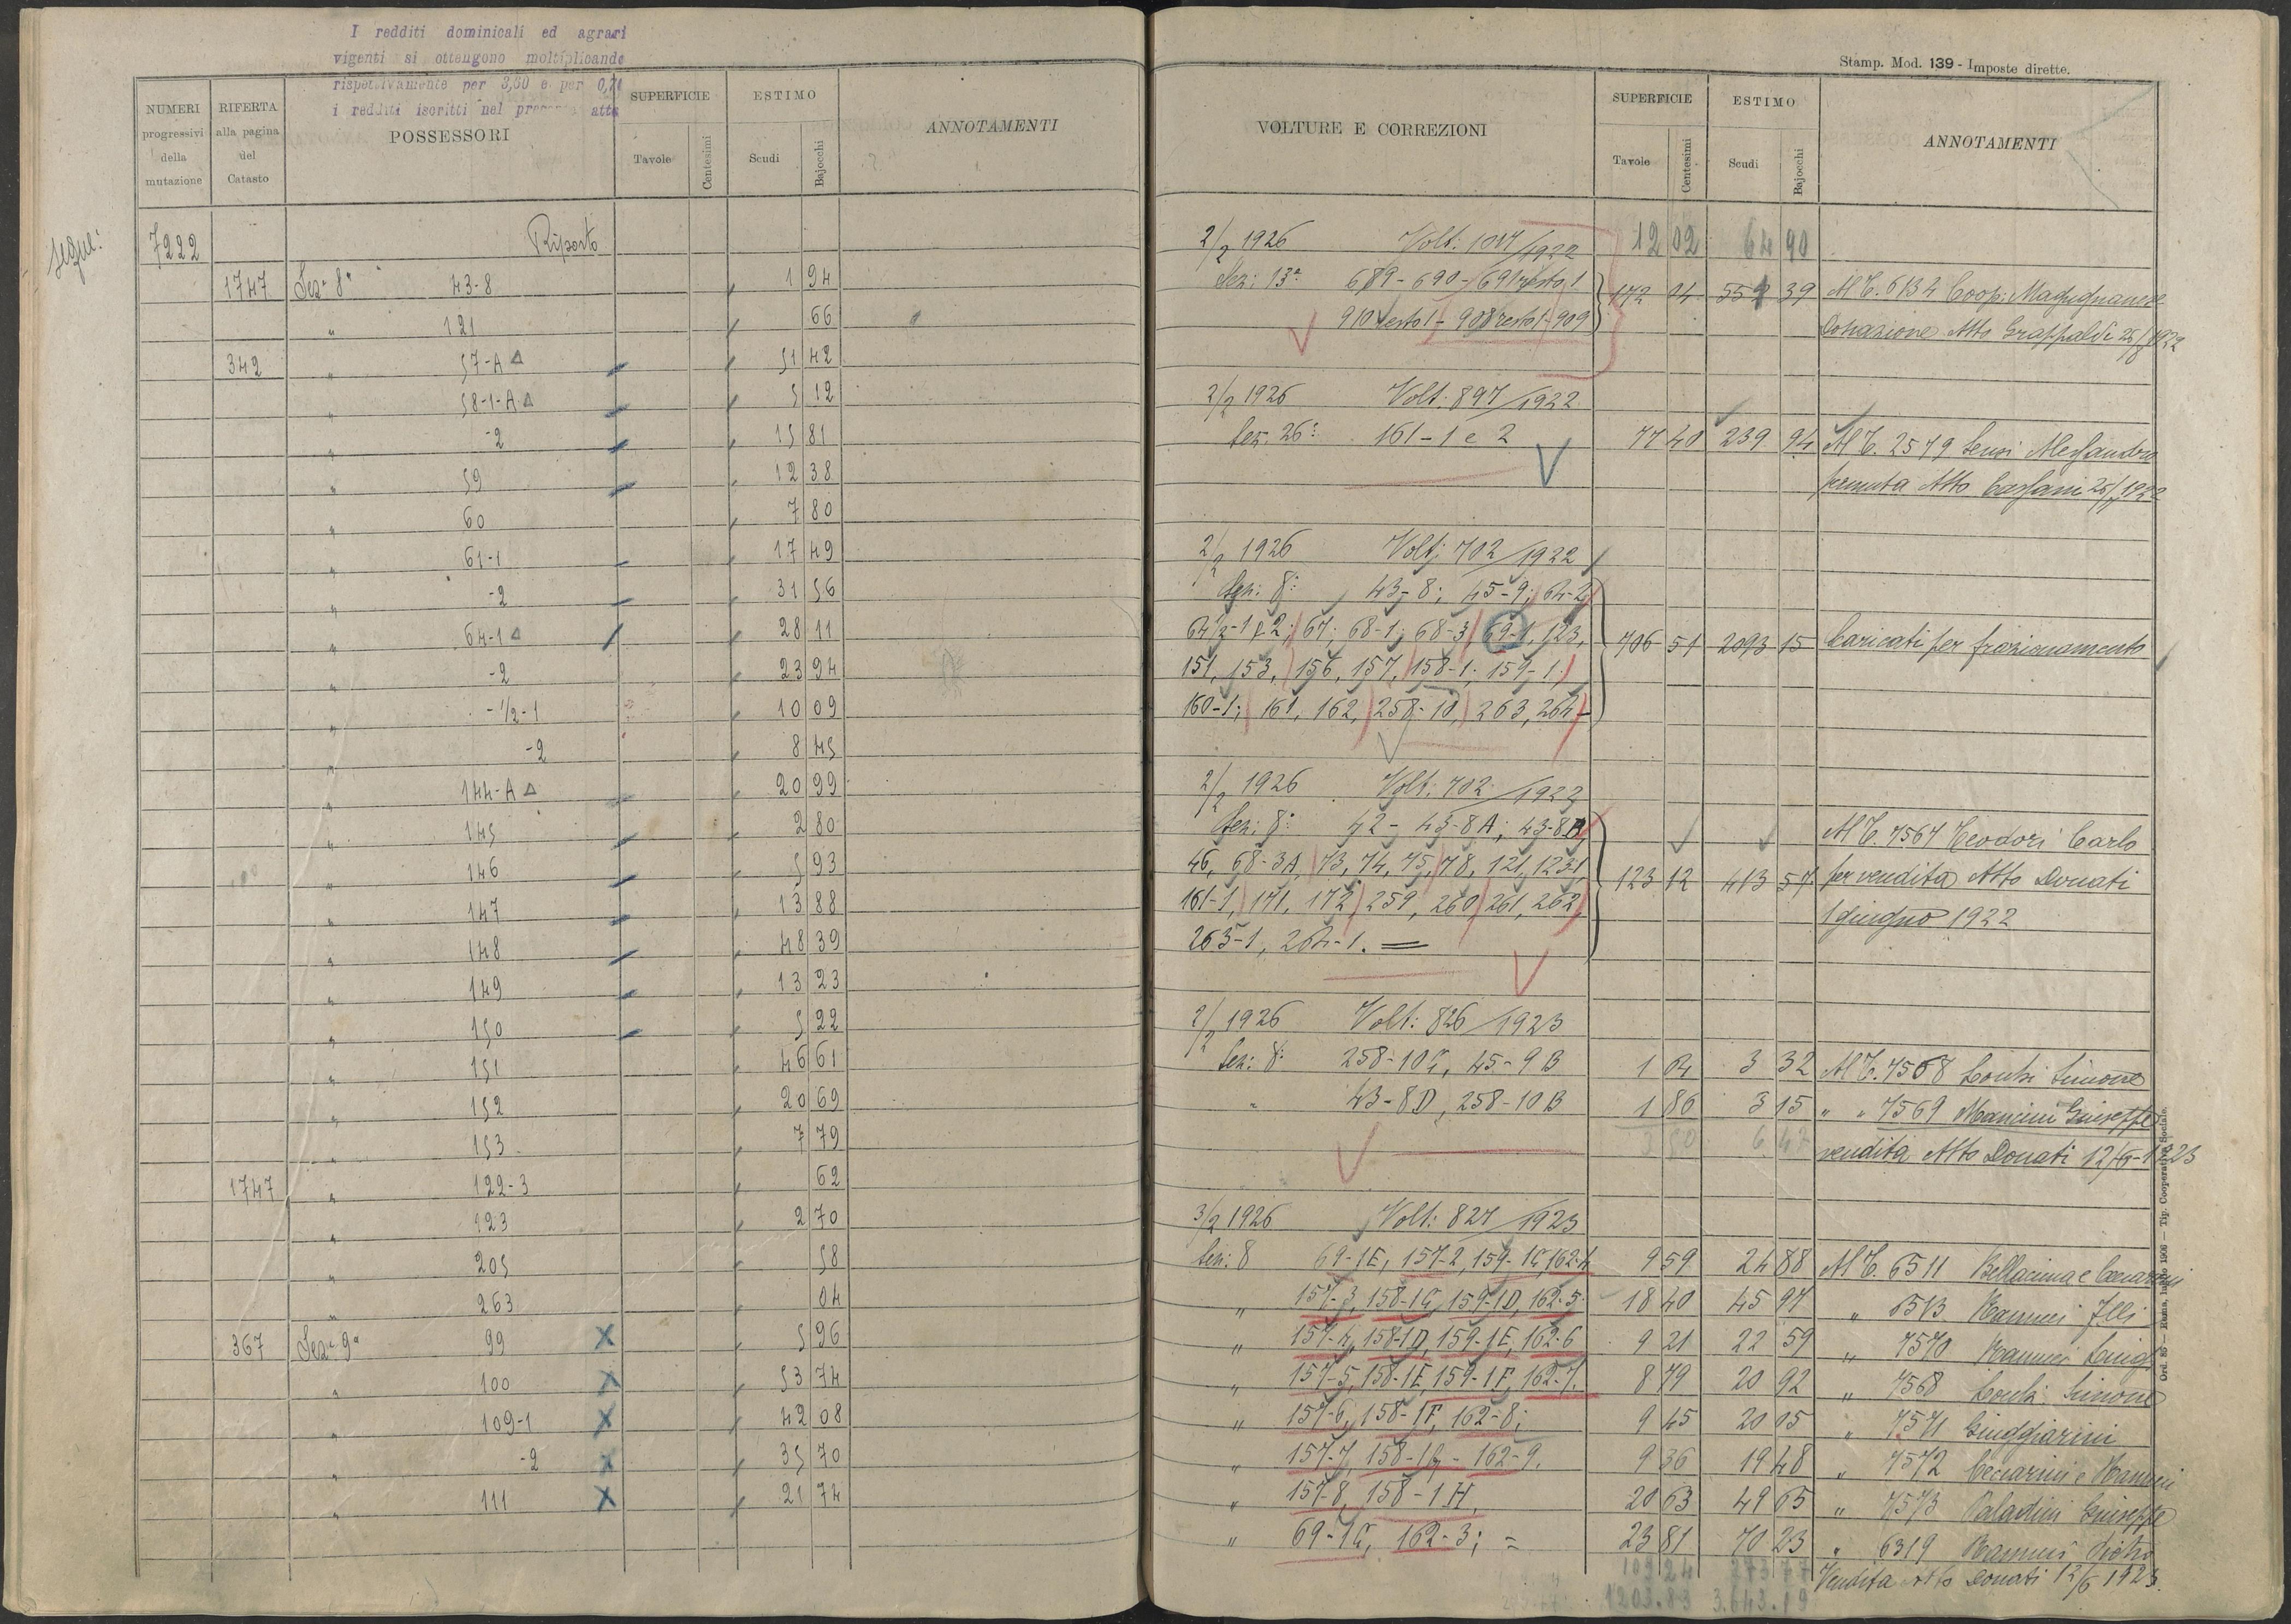 I redditi dominicali ed agrari
vigenti si ottengono moltiplicando
rispettivamente per 3,60 e per 0,70
i redditi iscritti nel presente atto
NUMERI progressivi della mutazione
RIFERTA alla pagina del Catasto
POSSESSORI
SUPERFICIE
Tavole
Centesimi
ESTIMO
Scudi
Bajocchi
ANNOTAMENTI
segue:
7222 Riporto
1747 Sez. 8ª 43-8 1 94
" 121 66
342 " 57-A Δ 51 42
" 58-1-A Δ 5 12
" -2 15 81
" 59 12 38
" 60 7 80
" 61-1 17 49
" -2 31 56
" 64-1 Δ 28 11
" -2 23 94
" -1/2-1 10 09
" -2 8 45
" 144-A Δ 20 99
" 145 2 80
" 146 5 93
" 147 13 88
" 148 48 39
" 149 13 23
" 150 5 22
" 151 46 61
" 152 20 69
" 153 7 79
1747 " 122-3 62
" 123 2 70
" 205 58
" 263 04
367 Sez. 9ª 99 X 5 96
" 100 X 53 74
" 109-1 X 42 08
" -2 X 35 70
" 111 X 21 74
Stamp. Mod. 139 - Imposte dirette.
VOLTURE E CORREZIONI
SUPERFICIE
Tavole
Centesimi
ESTIMO
Scudi
Bajocchi
ANNOTAMENTI
2/2 1926 Volt: 1017/1922 12 02 64 90
Sez: 13ª 689-690-691 resto 1 172 04 552 39 M T. 6134 Coop: Magugnanese
910 resto 1 - 908 resto 1 - 909 Donazione Atto Grappaldi 1922
2/2 1926 Volt: 897/1922
Sez. 26: 161-1 e 2 77 40 239 94 M T. 2579 Sensi Alessandro
permuta Atto 1922
2/2 1926 Volt; 702/1922
Sez: 8: 43-8; 45-9; 64-2
64 1/2-1 e 2; 67; 68-1; 68-3 69-1, 123, 706 51 2093 15 Caricati per frazionamento
151, 153, 156, 157, 158-1; 159-1;
160-1; 161, 162, 258-10, 263, 264
2/2 1926 Volt: 702/1922
Sez: 8: 42 - 43-8A; 43-8B M T. 7567 Teodori Carlo
46, 68-3A, 73, 74, 75, 78, 121, 123-1, 123 12 413 57 per vendita Atto Donati
161-1, 171, 172, 259, 260, 261, 262, 1 giugno 1922
263-1, 264-1. =
2/2 1926 Volt: 826/1923
Sez: 8: 258-10C, 45-9B 1 64 3 32 M T. 7568 Conti Simone
" 43-8D, 258-10B 1 86 3 15 " " 7569 Mancini Giuseppe
3 50 6 47 vendita Atto Donati 12/6-1923
3/2 1926 Volt: 827/1923
Sez: 8 69-1E, 157-2, 159-1C, 162-4 9 59 24 88 M T. 6511 Bellacima e Ceccarini
" 157-3, 158-1C, 159-1D, 162-5 18 40 45 97 " 6513 Nannini flli
" 157-4, 158-1D, 159-1E, 162-6 9 21 22 59 " 7570 Nannini Luigi
" 157-5, 158-1E, 159-1F, 162-7. 8 79 20 92 " 7568 Conti Simone
" 157-6, 158-1F, 162-8; 9 45 20 05 " 7571 Giuggiarini
" 157-7, 158-1G - 162-9. 9 36 19 48 " 7572 Ceccarini e Nannini
" 157-8, 158-1H, 20 63 49 65 " 7573 Paladini Giuseppe
" 69-1G, 162-3; = 23 81 70 23 " 6319 Nannini Pietro
109 24 273 77 Vendita Atto Donati 12/6 1923.
1203.83 3.643.19
Ord. 85 — Roma, luglio 1906 — Tip. Cooperativa Sociale.